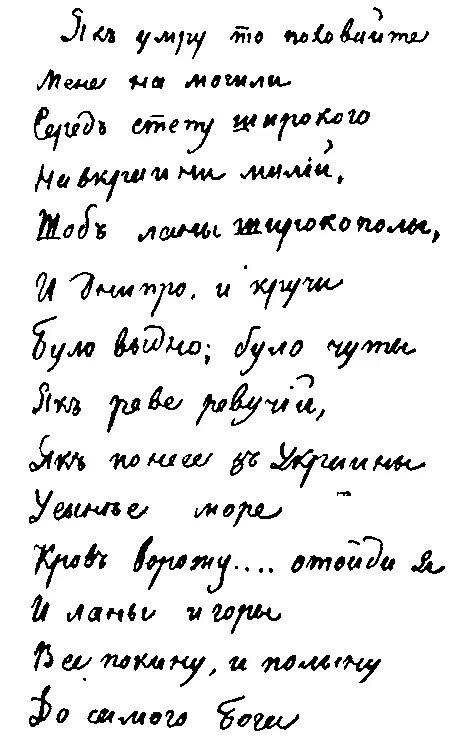 Якъ умру то поховайте
Мене на могили
Середъ степу широкого
На вкраини милій,
Щобъ ланы широкополы,
И Днипро, и кручи
Було выдно; було чуты
Якъ реве ревучій,
Якъ понесе зъ Украины
У сынье море
Кровъ ворожу.... отойди я
И ланы и горы
Все покину, и полыну
До самого Бога